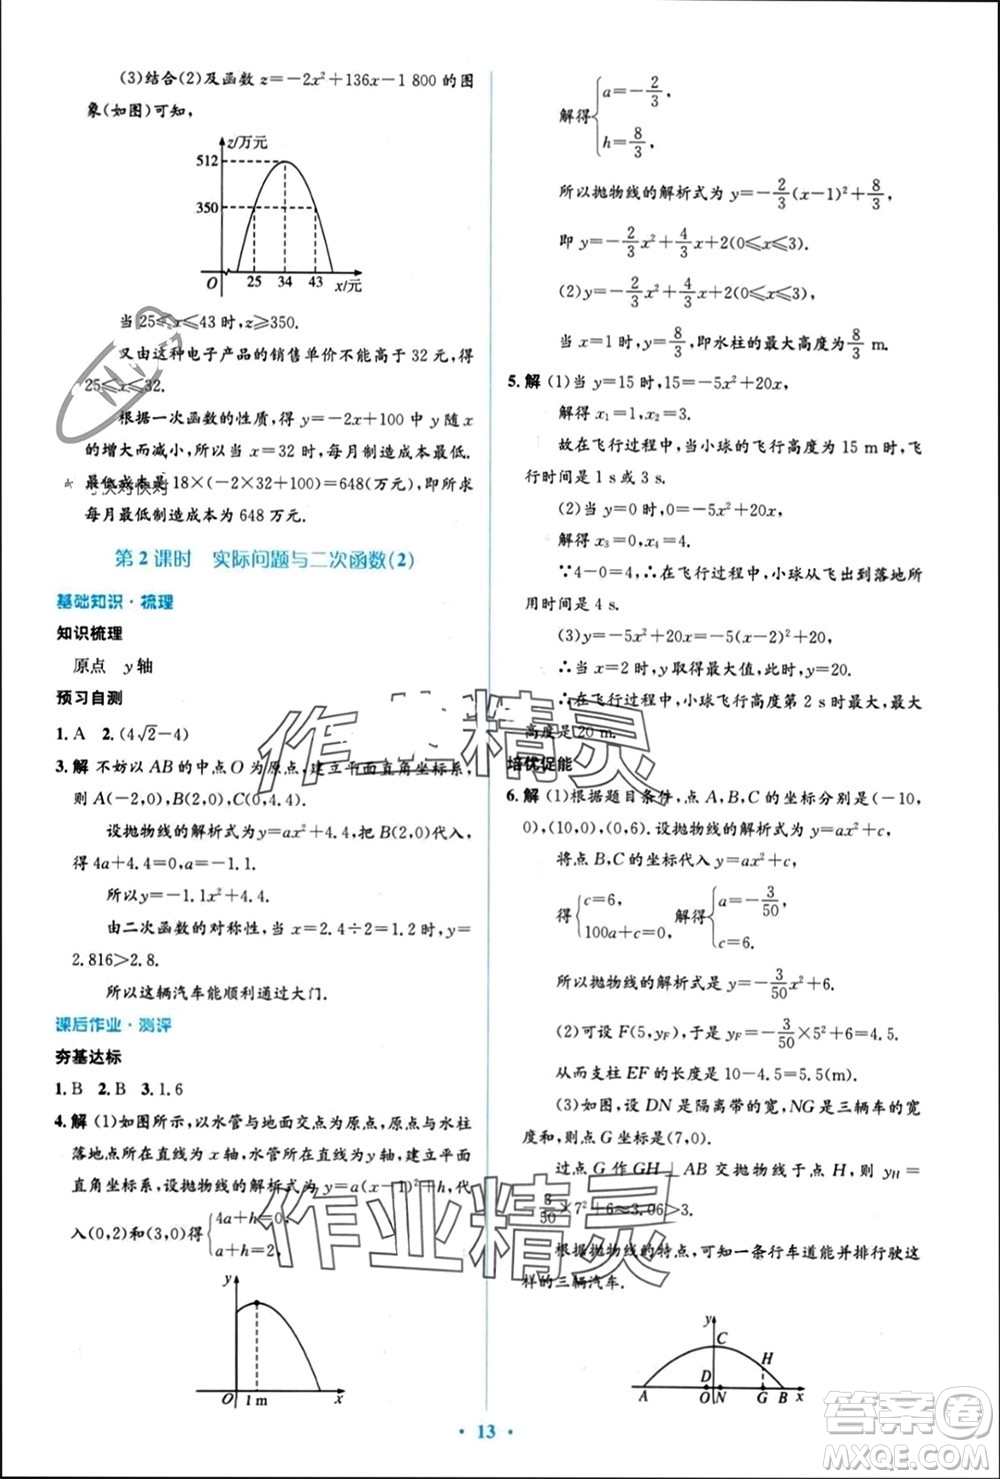 (3)结合(2)及函数 z=-2x²+136x-1 800 的图
象(如图)可知,
z/万元
512
350
O 25 34 43 x/元
当 25≤x≤43 时,z≥350.
又由这种电子产品的销售单价不能高于 32 元,得
25≤x≤32.
根据一次函数的性质,得 y=-2x+100 中 y 随 x
的增大而减小,所以当 x=32 时,每月制造成本最低.
最低成本是 18×(-2×32+100)=648(万元),即所求
每月最低制造成本为 648 万元.
第 2 课时 实际问题与二次函数(2)
基础知识·梳理
知识梳理
原点 y 轴
预习自测
1. A 2. (4√2-4)
3. 解 不妨以 AB 的中点 O 为原点,建立平面直角坐标系,
则 A(-2,0),B(2,0),C(0,4.4).
设抛物线的解析式为 y=ax²+4.4,把 B(2,0)代入,
得 4a+4.4=0,a=-1.1.
所以 y=-1.1x²+4.4.
由二次函数的对称性,知当 x=2.4÷2=1.2 时,y=
2.816>2.8.
所以这辆汽车能顺利通过大门.
课后作业·测评
夯基达标
1. B 2. B 3. 1.6
4. 解 (1)如图所示,以水管与地面交点为原点,原点与水柱
落地点所在直线为 x 轴,水管所在直线为 y 轴,建立平面
直角坐标系,设抛物线的解析式为 y=a(x-1)²+h,代
入(0,2)和(3,0)得{4a+h=0,
a+h=2,
y
O 1 m x
解得{a=-2/3,
h=8/3,
所以抛物线的解析式为 y=-2/3(x-1)²+8/3,
即 y=-2/3x²+4/3x+2(0≤x≤3).
(2)y=-2/3x²+4/3x+2(0≤x≤3),
当 x=1 时,y=8/3,即水柱的最大高度为 8/3 m.
5. 解 (1)当 y=15 时,15=-5x²+20x,
解得 x₁=1,x₂=3.
故在飞行过程中,当小球的飞行高度为 15 m 时,飞
行时间是 1 s 或 3 s.
(2)当 y=0 时,0=-5x²+20x,
解得 x₁=0,x₂=4.
∵4-0=4,∴在飞行过程中,小球从飞出到落地所
用时间是 4 s.
(3)y=-5x²+20x=-5(x-2)²+20,
∴当 x=2 时,y 取得最大值,此时,y=20.
∴在飞行过程中,小球飞行高度第 2 s 时最大,最大
高度是 20 m.
培优促能
6. 解 (1)根据题目条件,点 A,B,C 的坐标分别是(-10,
0),(10,0),(0,6).设抛物线的解析式为 y=ax²+c,
将点 B,C 的坐标代入 y=ax²+c,
得{c=6,
100a+c=0,
解得{a=-3/50,
c=6.
所以抛物线的解析式是 y=-3/50x²+6.
(2)可设 F(5,y_F),于是 y_F=-3/50×5²+6=4.5,
从而支柱 EF 的长度是 10-4.5=5.5(米).
(3)如图,设 DN 是隔离带的宽,NG 是三辆车的宽
度和,则点 G 坐标是(7,0).
过点 G 作 GH⊥AB 交抛物线于点 H,则 y_H=
-3/50×7²+6≈3.06>3.
根据抛物线的特点,可知一条行车道能并排行驶这
样的三辆汽车.
y C
H
D
A O N G B x
· 13 ·
作业精灵
作业精灵
答案圈
MXQE.COM